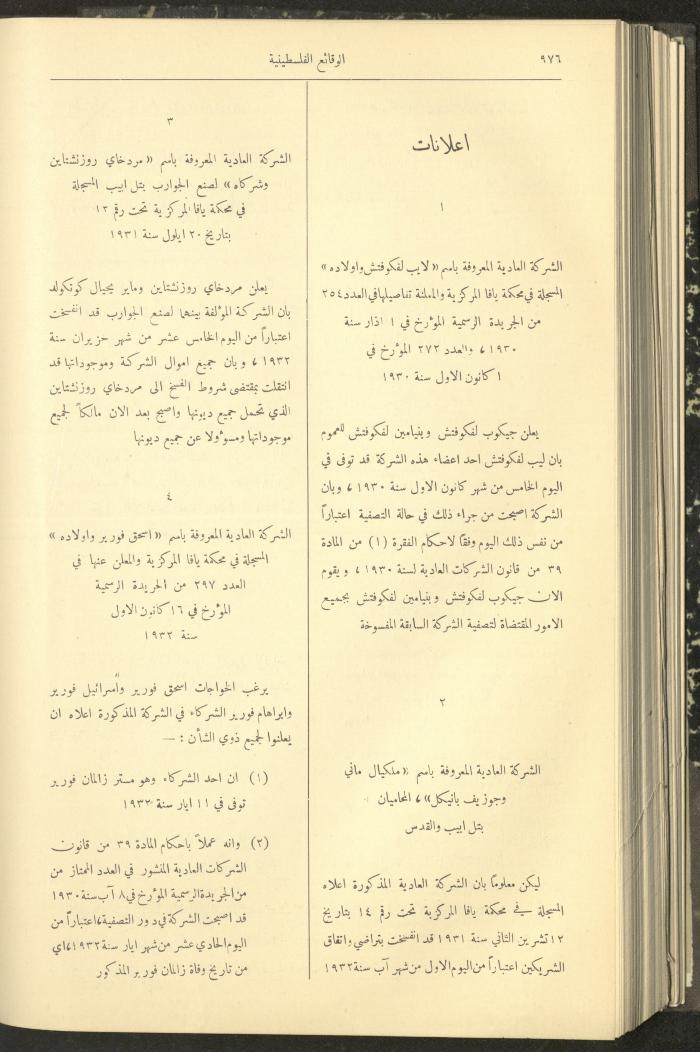 ٩٧٦
الوقائع الفلسطينية
اعلانات
١
الشركة العادية المعروفة باسم «لايب لفكوفتش واولاده»
المسجلة في محكمة يافا المركزية والمعلنة تفاصيلها في العدد ٢٥٤
من الجريدة الرسمية المؤرخ في ١ اذار سنة
١٩٣٠، والعدد ٢٧٢ المؤرخ في
١ كانون الاول سنة ١٩٣٠
يعلن جيكوب لفكوفتش وبنيامين لفكوفتش للعموم
بان ليب لفكوفتش احد اعضاء هذه الشركة قد توفى في
اليوم الخامس من شهر كانون الاول سنة ١٩٣٠، وبان
الشركة اصبحت من جراء ذلك في حالة التصفية اعتباراً
من نفس ذلك اليوم وفقاً لاحكام الفقرة (١) من المادة
٣٩ من قانون الشركات العادية لسنة ١٩٣٠، ويقوم
الان جيكوب لفكوفتش وبنيامين لفكوفتش بجميع
الامور المقتضاة لتصفية الشركة السابقة المفسوخة
٢
الشركة العادية المعروفة باسم «ملكيال ماني
وجوزيف بانيكل»، المحاميان
بتل ابيب والقدس
ليكن معلوماً بان الشركة العادية المذكورة اعلاه
المسجلة في محكمة يافا المركزية تحت رقم ١٤ بتاريخ
١٢ تشرين الثاني سنة ١٩٣١ قد انفسخت بتراضي واتفاق
الشريكين اعتباراً من اليوم الاول من شهر آب سنة ١٩٣٢
٣
الشركة العادية المعروفة باسم «مردخاي روزنشتاين
وشركاه» لصنع الجوارب بتل ابيب المسجلة
في محكمة يافا المركزية تحت رقم ١٢
بتاريخ ٢٠ ايلول سنة ١٩٣١
يعلن مردخاي روزنشتاين وماير يحيال كوتكولد
بان الشركة المؤلفة بينهما لصنع الجوارب قد انفسخت
اعتباراً من اليوم الخامس عشر من شهر حزيران سنة
١٩٣٢، وبان جميع اموال الشركة وموجوداتها قد
انتقلت بمقتضى شروط الفسخ الى مردخاي روزنشتاين
الذي تحمل جميع ديونها واصبح بعد الان مالكاً لجميع
موجوداتها ومسؤولا عن جميع ديونها
٤
الشركة العادية المعروفة باسم «اسحق فورير واولاده»
المسجلة في محكمة يافا المركزية والمعلن عنها في
العدد ٢٩٧ من الجريدة الرسمية
المؤرخ في ١٦ كانون الاول
سنة ١٩٣٢
يرغب الخواجات اسحق فورير وأسرائيل فورير
وابراهام فورير الشركاء في الشركة المذكورة اعلاه ان
يعلنوا لجميع ذوي الشأن : —
(١) ان احد الشركاء وهو مستر زالمان فورير
توفى في ١١ ايار سنة ١٩٣٢
(٢) وانه عملاً باحكام المادة ٣٩ من قانون
الشركات العادية المنشور في العدد الممتاز من
من الجريدة الرسمية المؤرخ في ٨ آب سنة ١٩٣٠
قد اصبحت الشركة في دور التصفية، اعتباراً من
اليوم الحادي عشر من شهر ايار سنة ١٩٣٢، اي
من تاريخ وفاة زالمان فورير المذكور